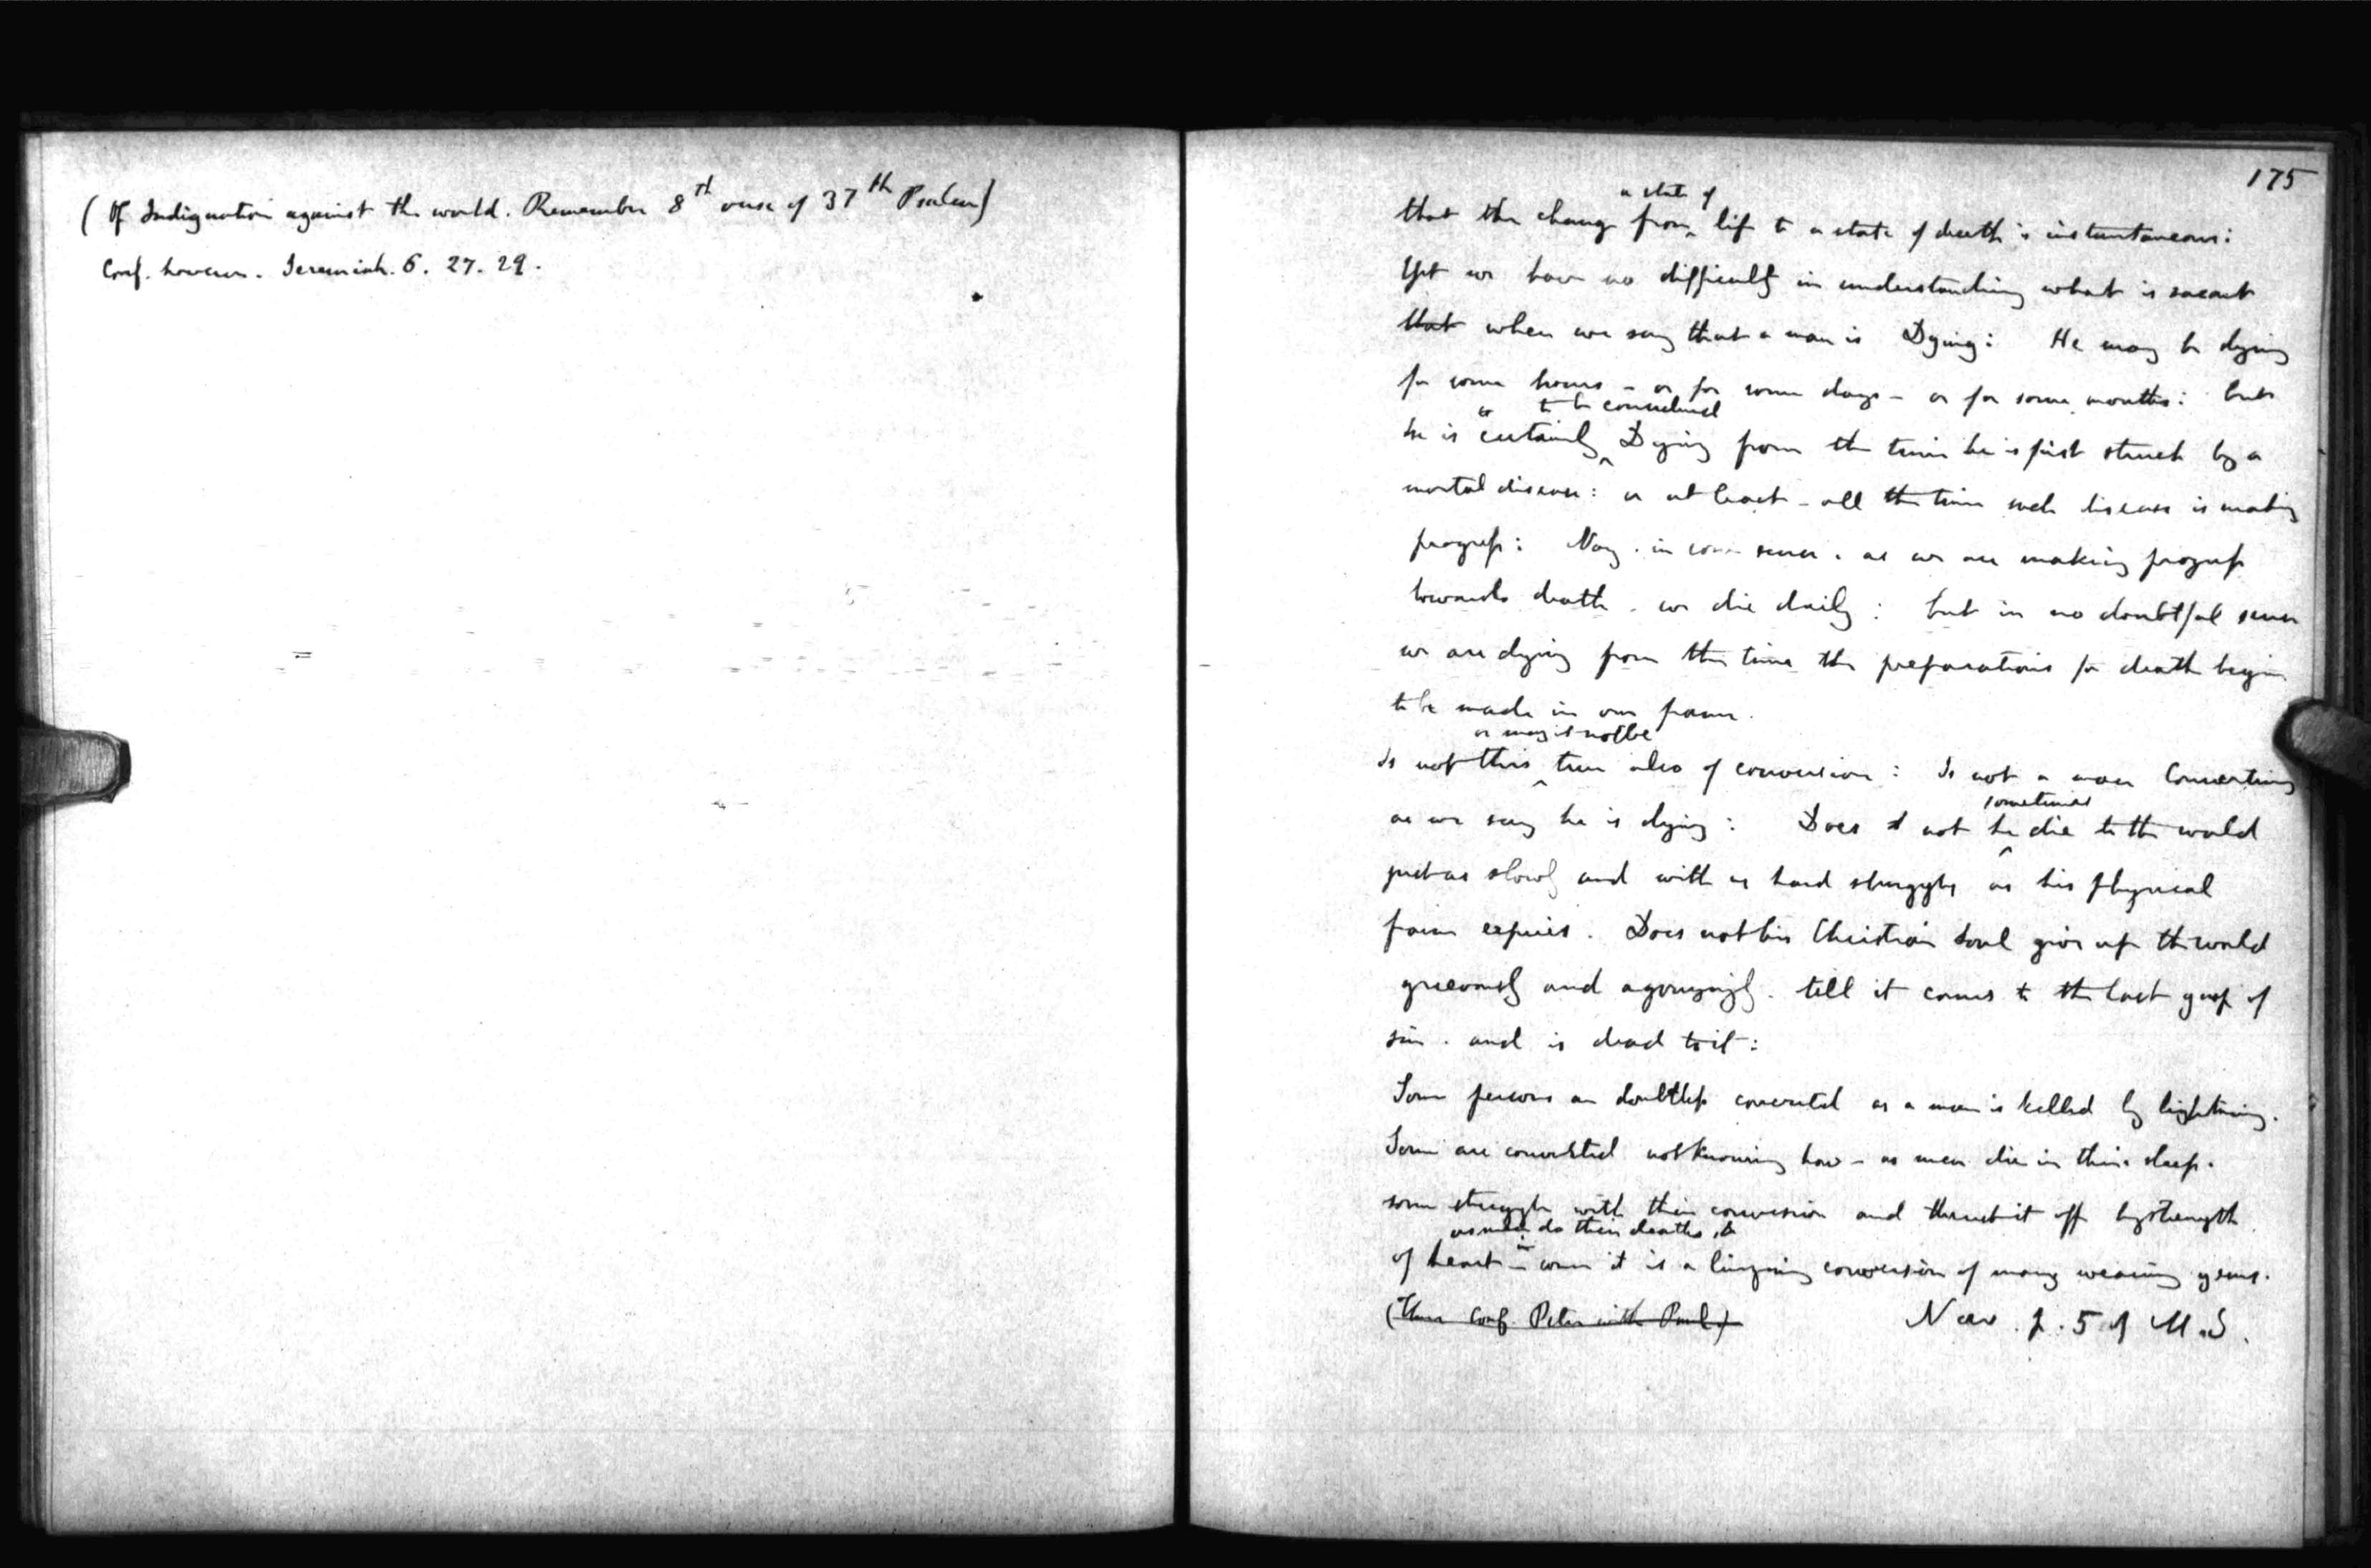 (Of Indignation against the world. Remember 8th verse of 37th Psalm)
Conf. however. Jeremiah. 6. 27. 29.
175
a state of
that the change from life to a state of death is instantaneous:
Yet we have no difficulty in understanding what is meant
that when we say that a man is Dying: He may be dying
for some hours - or for some days - or for some months: but
is to be considered
he is certainly Dying from the time he is first struck by a
mortal disease: or at least - all the time such disease is making
progress: Nay. in some sense. as we are making progress
towards death. we die daily: but in no doubtful sense
we are dying from the time the preparations for death begin
to be made in our frame.
or may it not be
Is not this true also of conversion: Is not a man Converting
sometimes
as we say he is dying: Does not he die to the world
just as slowly and with as hard struggle as his physical
frame expires. Does not his Christian Soul give up the world
grievously and agonizingly. till it comes to the last gasp of
sin. and is dead to it:
Some persons are doubtless converted as a man is killed by lightning.
Some are converted not knowing how - as men die in their sleep.
some struggle with their conversion and thrust it off by strength
as men do their deaths.
of heart - in some it is a lingering conversion of many weaning years.
(Then Conf. Peter with Paul)
Nov. p. 5 of M.S.